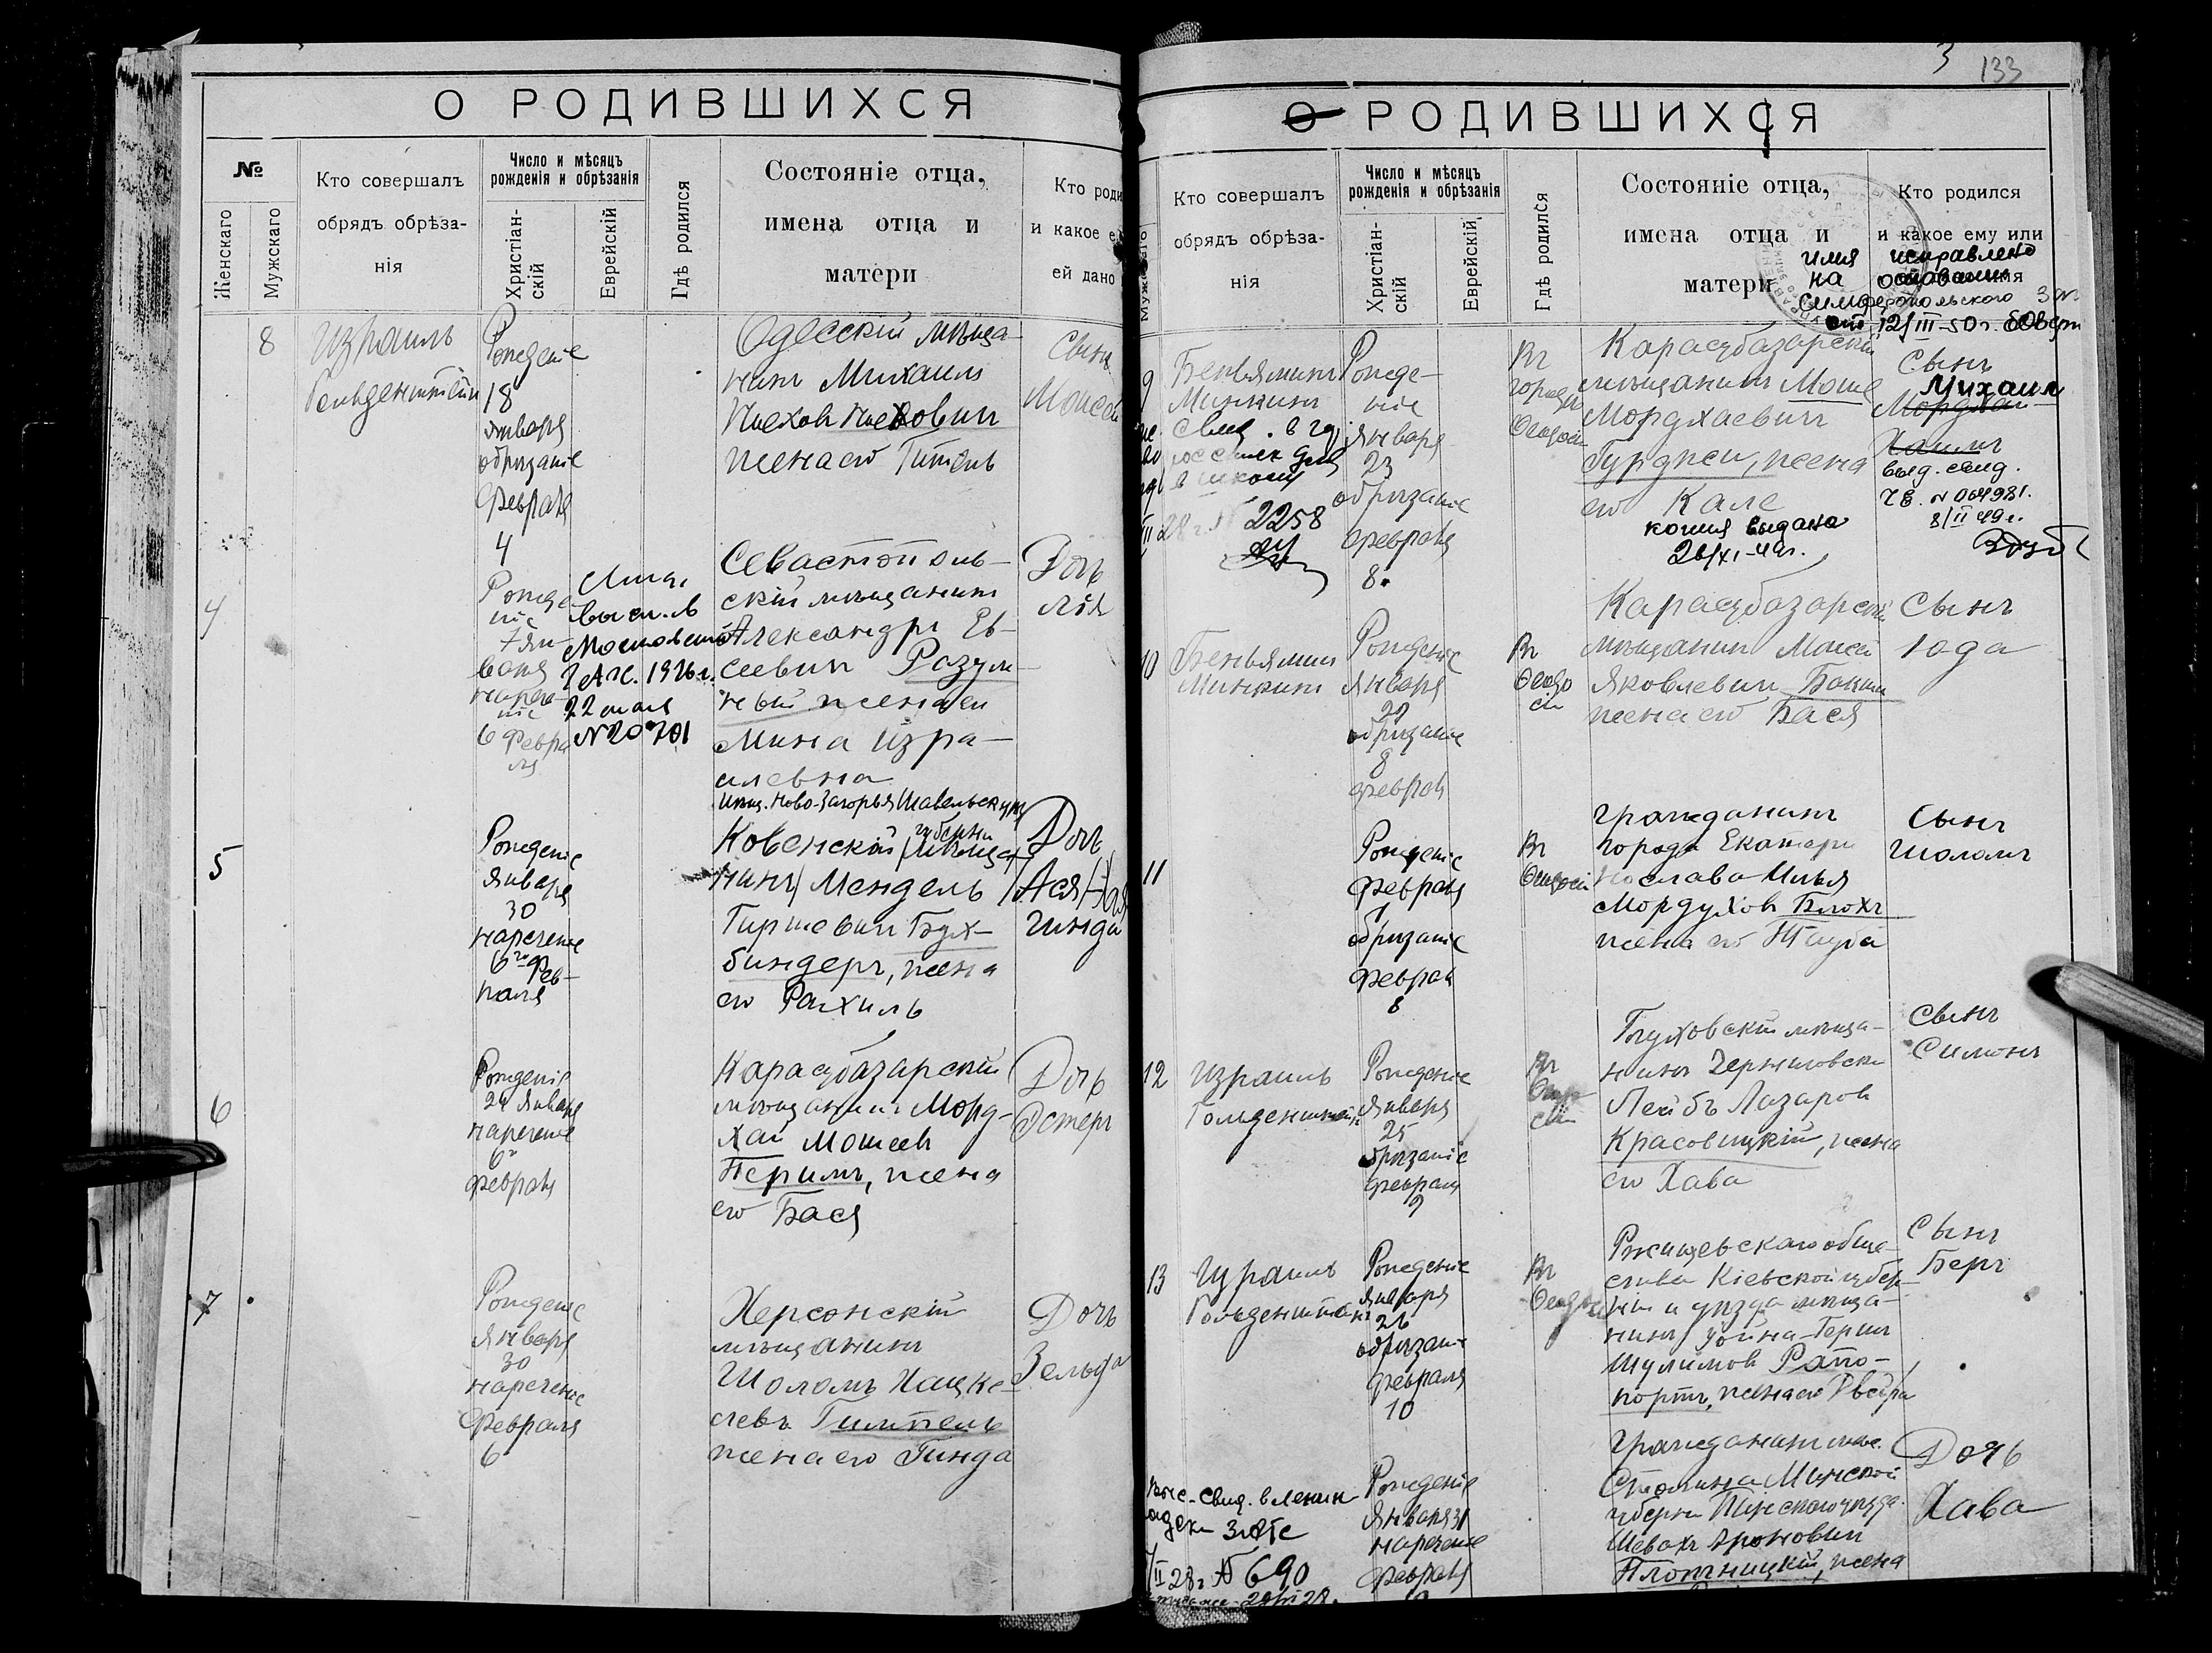 О РОДИВШИХСЯ
№
Женскаго
Мужскаго
Кто совершалъ
обрядъ обрѣза-
нія
Число и мѣсяцъ
рожденія и обрѣзанія
Христіан-
скій
Еврейскій
Гдѣ родился
Состояніе отца,
имена отца и
матери
Кто роди
и какое е
ей дано
8
Израиль
Рождение
18
января
обрѣзаніе
февраля
4
Одесскій мѣща-
нинъ Михаилъ
жена его
Сынъ
Моисей
4
7 Ян-
варя
6 Февра
ля
1926 г.
22 мая
N 20701
Севастополь-
скій мѣщанинъ
Александръ Ев-
сеевичъ Разум-
ный жена его
Мина Изра-
илевна
Дочь
Лія
5
Рожденіе
Января
30
нареченіе
6го Фев-
раля
губерніи
Ковенскій мѣща
нинъ Мендель
Гиршевичъ Бух-
биндеръ, жена
его Рахиль
Дочь
Ася
Гинда
6
Рожденіе
24 Января
нареченіе
6
февраля
Карасубазарскій
мѣщанинъ Морд-
хай Мошеевъ
Перимъ, жена
его Бася
Дочь
Эстеръ
7
Рожденіе
Января
30
нареченіе
Февраля
6
Херсонскій
мѣщанинъ
Шоломъ Хацке-
левъ Гимпель
жена его Гинда
Дочь
Зельда
3
133
О РОДИВШИХСЯ
Мужскаго
Кто совершалъ
обрядъ обрѣза-
нія
Число и мѣсяцъ
рожденія и обрѣзанія
Христіан-
скій
Еврейскій
Гдѣ родился
Состояніе отца,
имена отца и
матери
Кто родился
и какое ему или
имя исправлено
на основании
Симферопольского
12/III-50 г.
9
Беньяминъ
Минкинъ
N 2258
Рожде-
ніе
Января
23
обрѣзаніе
февраля
8
Въ
городѣ
Ѳеодосіи
Карасубазарскій
мѣщанинъ Моше
Мордхаевичъ
Гурджи, жена
его Кале
копия выдана
26/XI-49г.
Сынъ
Михаил
Мордхай
Хаимъ
выд. свид.
N 064981.
8/II 49 г.
10
Беньяминъ
Минкинъ
Рожденіе
Января
обрѣзаніе
8
февраля
Въ
Ѳеодо
сіи
Карасубазарскій
мѣщанинъ Моисей
Яковлевичъ Бакши
жена его Бася
Сынъ
Іода
11
Рожденіе
Февраля
1
обрѣзаніе
Февраля
8
Въ
Ѳеодосіи
Гражданинъ
города Екатери
нослава Илья
Мордуховъ Блохъ
жена его Тауба
Сынъ
Шоломъ
12
Израиль
Гольденштейнъ
Рожденіе
Января
25
обрѣзаніе
февраля
Въ
Ѳеодо
сіи
Глуховскій мѣща-
нинъ Черниговской
Лейбъ Лазаровъ
Красовицкій, жена
его Хава
Сынъ
Симонъ
13
Израиль
Гольденштейнъ
Рожденіе
Января
26
обрѣзаніе
февраля
10
Въ
Ѳеодосіи
Ржищевскаго обще-
ства Кіевской губер-
ніи и уѣзда мѣща-
нинъ Хойна-Гершъ
Шулимовъ Рапо-
портъ, жена его Двейра
Сынъ
Беръ
N 690
Рожденіе
Января 31
нареченіе
февраля
Гражданинъ мѣс.
Столина Минской
губерніи Пинскаго уѣзда
Шевахъ Ароновичъ
Плотницкій, жена
Дочь
Хава